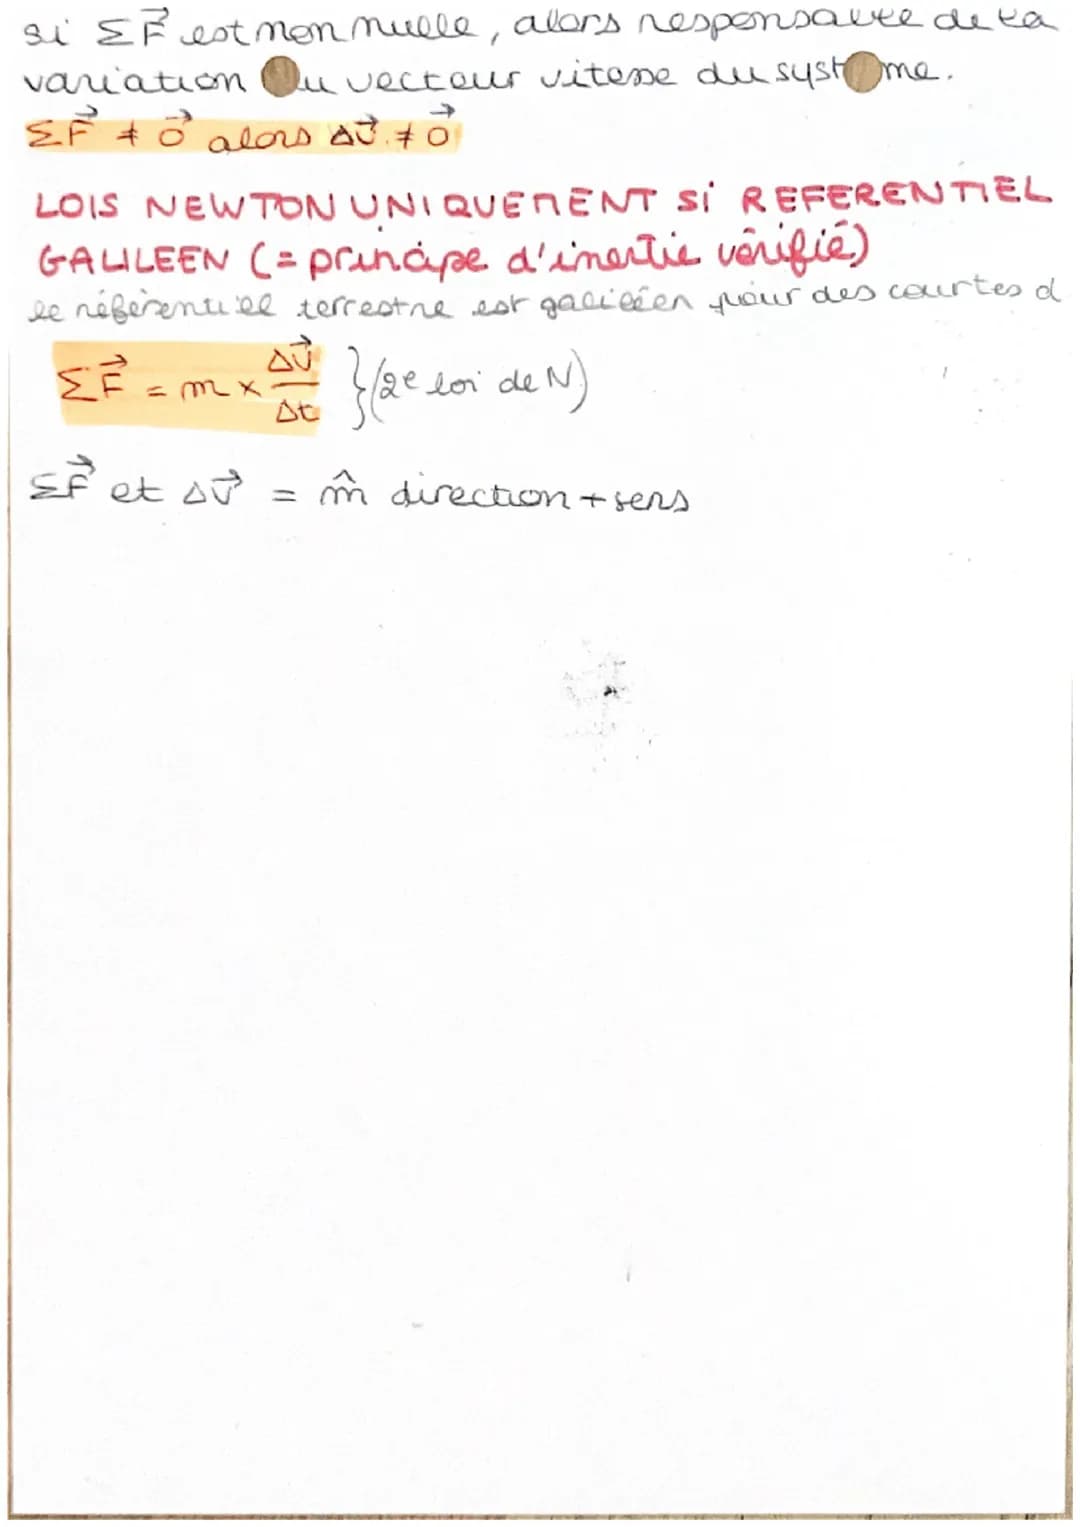 si ΣF⃗ est non nulle, alors responsable de la
variation du vecteur vitesse du système.
ΣF⃗ ≠ 0⃗ alors Δv⃗ ≠ 0⃗
LOIS NEWTON UNIQUEMENT Si REFERENTIEL
GALILEEN (= principe d'inertie vérifié)
le référentiel terrestre est galiléen pour des courtes d
ΣF⃗ = m × Δv⃗/Δt } (2e loi de N)
ΣF⃗ et Δv⃗ = m̂ direction + sens